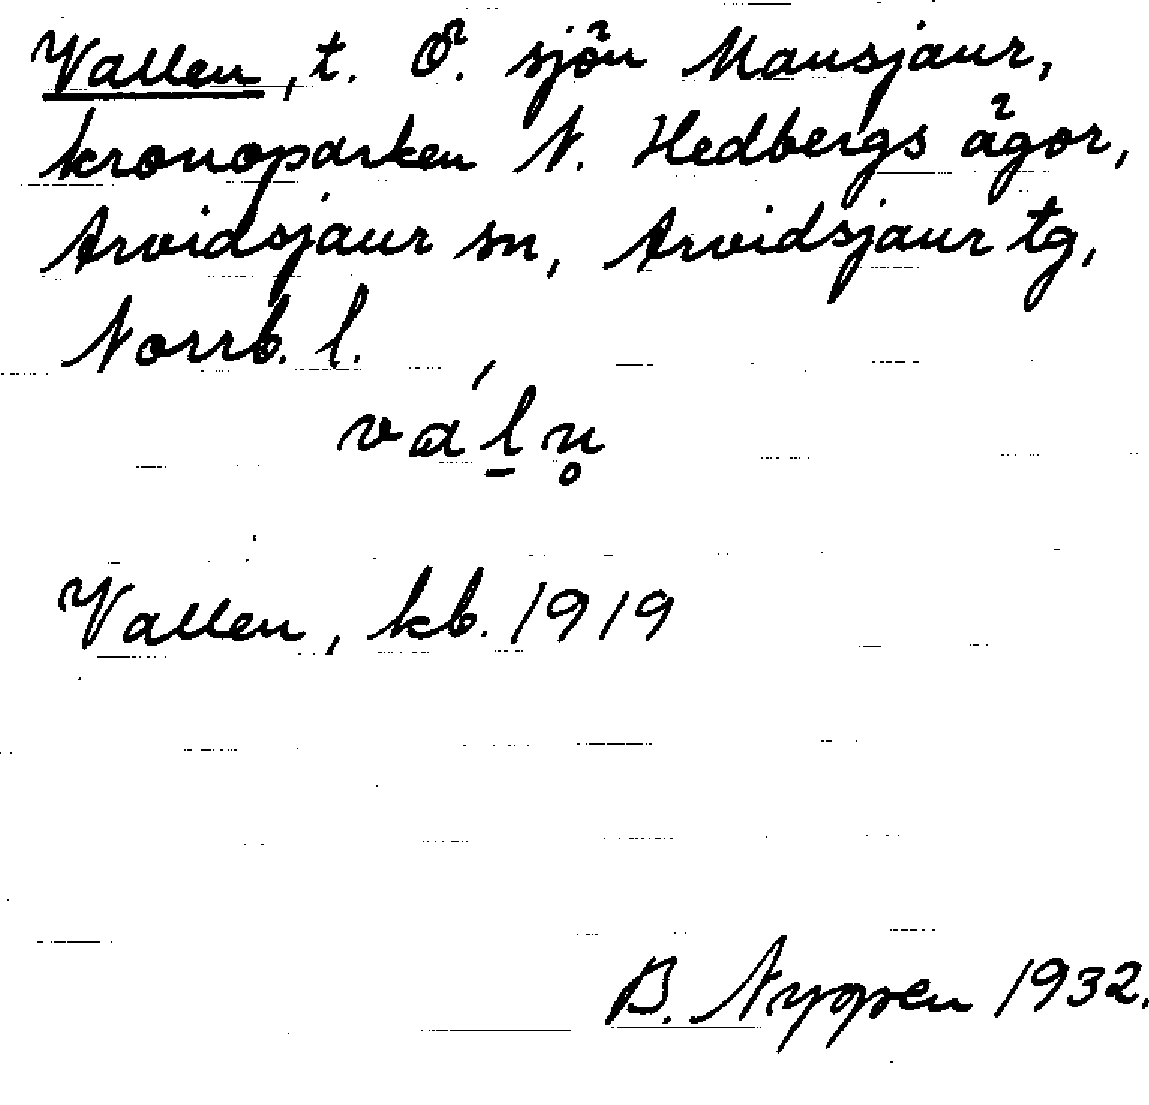 Vallen, t. Ö. sjön Mausjaur,
kronoparken N. Hedbergs ägor,
Arvidsjaur sn, Arvidsjaur tg,
Norrb. l.
váḻn̥
Vallen, kb. 1919
B. Nyppen 1932.